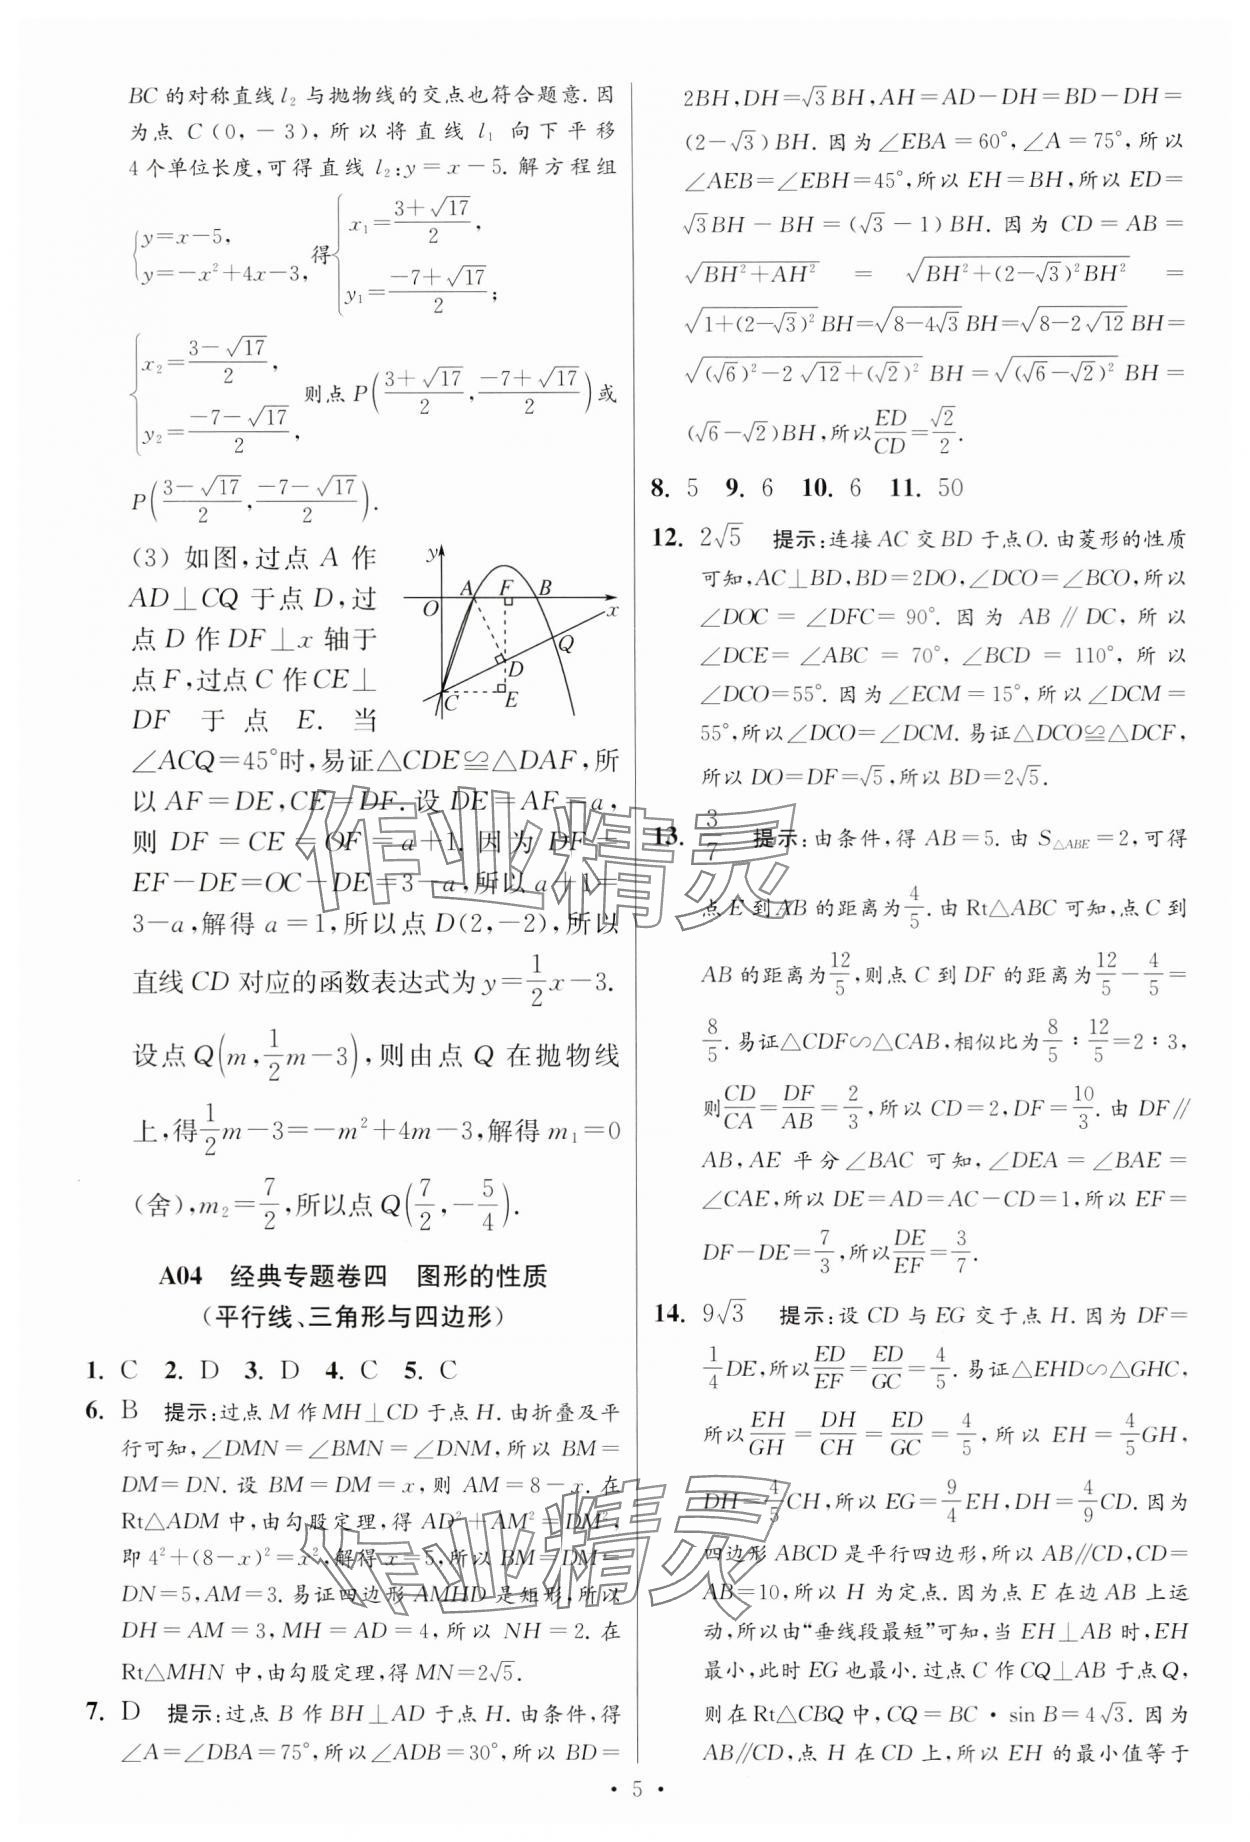 BC的对称直线l₂与抛物线的交点也符合题意.因
为点C(0,-3),所以将直线l₁向下平移
4个单位长度,可得直线l₂:y=x-5.解方程组
{y=x-5, y=-x²+4x-3, 得{x₁=(3+√17)/2, y₁=(-7+√17)/2;
{x₂=(3-√17)/2, y₂=(-7-√17)/2, 则点P((3+√17)/2,(-7+√17)/2)或
P((3-√17)/2,(-7-√17)/2).
(3)如图,过点A作
AD⊥CQ于点D,过
点D作DF⊥x轴于
点F,过点C作CE⊥
DF于点E.当
y
A F B
O
x
Q
D
C E
∠ACQ=45°时,易证△CDE≌△DAF,所
以AF=DE,CE=DF.设DE=AF=a,
则DF=CE=OF=a+1.因为DF=
EF-DE=OC-DE=3-a,所以a+1=
3-a,解得a=1,所以点D(2,-2),所以
直线CD对应的函数表达式为y=1/2x-3.
设点Q(m,1/2m-3),则由点Q在抛物线
上,得1/2m-3=-m²+4m-3,解得m₁=0
(舍),m₂=7/2,所以点Q(7/2,-5/4).
A04 经典专题卷四 图形的性质
(平行线、三角形与四边形)
1. C 2. D 3. D 4. C 5. C
6. B 提示:过点M作MH⊥CD于点H.由折叠及平
行可知,∠DMN=∠BMN=∠DNM,所以BM=
DM=DN.设BM=DM=x,则AM=8-x.在
Rt△ADM中,由勾股定理,得AD²+AM²=DM²,
即4²+(8-x)²=x²,解得x=5,所以BM=DM=
DN=5,AM=3.易证四边形AMHD是矩形,所以
DH=AM=3,MH=AD=4,所以NH=2.在
Rt△MHN中,由勾股定理,得MN=2√5.
7. D 提示:过点B作BH⊥AD于点H.由条件,得
∠A=∠DBA=75°,所以∠ADB=30°,所以BD=
2BH,DH=√3BH,AH=AD-DH=BD-DH=
(2-√3)BH.因为∠EBA=60°,∠A=75°,所以
∠AEB=∠EBH=45°,所以EH=BH,所以ED=
√3BH-BH=(√3-1)BH.因为CD=AB=
√(BH²+AH²)=√(BH²+(2-√3)²BH²)=
√(1+(2-√3)²)BH=√(8-4√3)BH=√(8-2√12)BH=
√((√6)²-2√12+(√2)²)BH=√((√6-√2)²)BH=
(√6-√2)BH,所以ED/CD=√2/2.
8. 5 9. 6 10. 6 11. 50
12. 2√5 提示:连接AC交BD于点O.由菱形的性质
可知,AC⊥BD,BD=2DO,∠DCO=∠BCO,所以
∠DOC=∠DFC=90°.因为AB∥DC,所以
∠DCE=∠ABC=70°,∠BCD=110°,所以
∠DCO=55°.因为∠ECM=15°,所以∠DCM=
55°,所以∠DCO=∠DCM.易证△DCO≌△DCF,
所以DO=DF=√5,所以BD=2√5.
13. 3/7 提示:由条件,得AB=5.由S△ABE=2,可得
点E到AB的距离为4/5.由Rt△ABC可知,点C到
AB的距离为12/5,则点C到DF的距离为12/5-4/5=
8/5.易证△CDF∽△CAB,相似比为8/5:12/5=2:3,
则CD/CA=DF/AB=2/3,所以CD=2,DF=10/3.由DF∥
AB,AE平分∠BAC可知,∠DEA=∠BAE=
∠CAE,所以DE=AD=AC-CD=1,所以EF=
DF-DE=7/3,所以DE/EF=3/7.
14. 9√3 提示:设CD与EG交于点H.因为DF=
1/4DE,所以ED/EF=ED/GC=4/5.易证△EHD∽△GHC,
所以EH/GH=DH/CH=ED/GC=4/5,所以EH=4/5GH,
DH=4/5CH,所以EG=9/4EH,DH=4/9CD.因为
四边形ABCD是平行四边形,所以AB∥CD,CD=
AB=10,所以H为定点.因为点E在边AB上运
动,所以由“垂线段最短”可知,当EH⊥AB时,EH
最小,此时EG也最小.过点C作CQ⊥AB于点Q,
则在Rt△CBQ中,CQ=BC·sin B=4√3.因为
AB∥CD,点H在CD上,所以EH的最小值等于
作业精灵
作业精灵
·5·